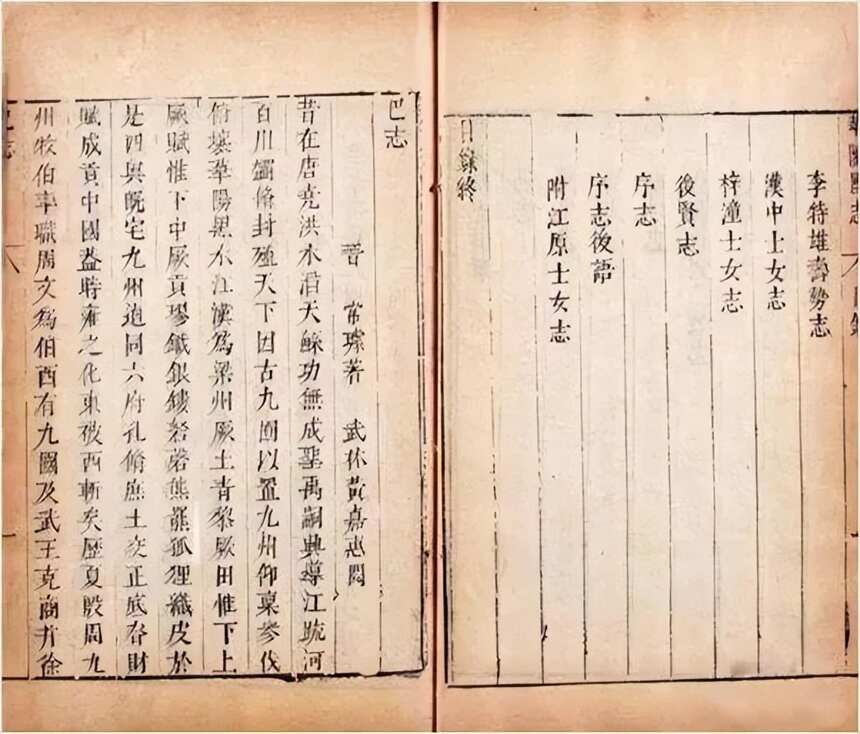 華陽國志 目錄
李特雄壽勢志
漢中士女志
梓潼士女志
後賢志
序志
序志後語
附江原士女志
目錄終
巴志
晉 常璩著 武林黃嘉惠閱
昔在唐堯洪水滔天鯀功無成聖禹嗣典導江疏河
百川蠲脩封殖天下因古九囿以置九州仰稟參伐
俯壤華陽黑水江漢爲梁州厥土青黎厥田惟下上
厥賦惟下中厥貢璆鐵銀鏤砮磬熊羆狐狸織皮於
是四奧既宅九州逌同六府孔脩庶土交正底昚財
賦成貢中國蓋時雍之化東被西漸矣歷夏殷周九
州牧伯率職周文爲伯西有九國及武王克商并徐
巴志 一